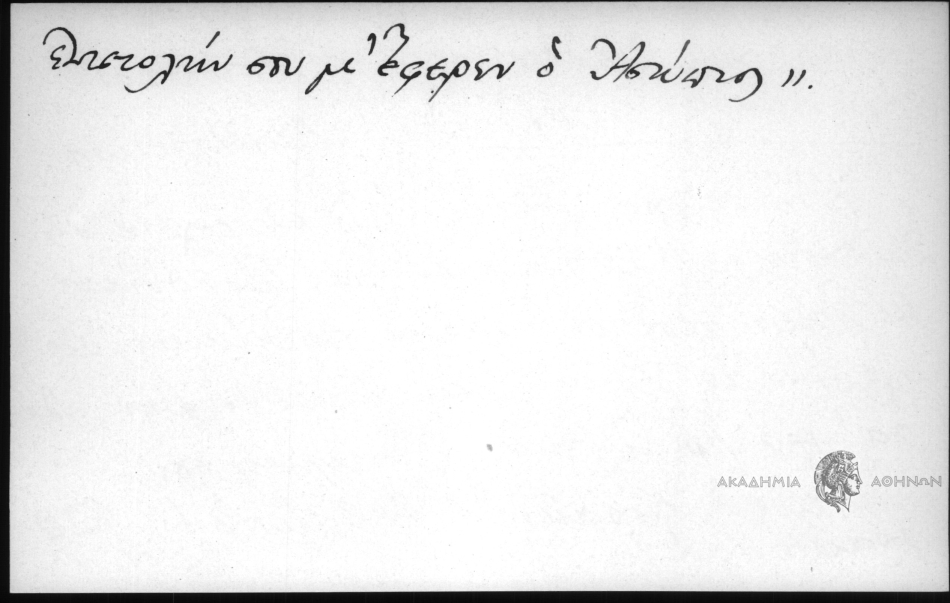 ἐπιστολήν σου μ' ἔφερεν ὁ Ἀσώπιος".
ΑΚΑΔΗΜΙΑ ΑΘΗΝΩΝ